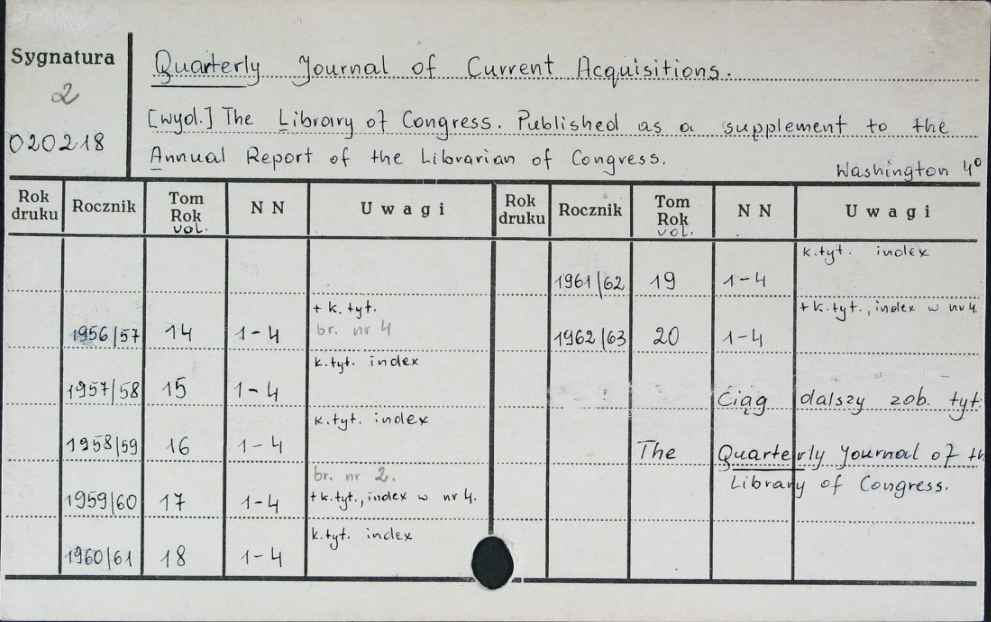 Sygnatura
2
020218
Quarterly Journal of Current Acquisitions.
[wyd.] The Library of Congress. Published as a supplement to the
Annual Report of the Librarian of Congress.
Washington 4°
Rok druku Rocznik Tom Rok vol. NN Uwagi Rok druku Rocznik Tom Rok vol. NN Uwagi
k.tyt. index
1961/62 19 1-4
+ k. tyt.
1956/57 14 1-4 br. nr 4
+ k.tyt., index w nr 4
1962/63 20 1-4
k.tyt. index
1957/58 15 1-4
Ciąg dalszy zob. tyt.
k.tyt. index
1958/59 16 1-4
The Quarterly Journal of th
Library of Congress.
br. nr 2.
1959/60 17 1-4 + k.tyt., index w nr 4.
k.tyt. index
1960/61 18 1-4